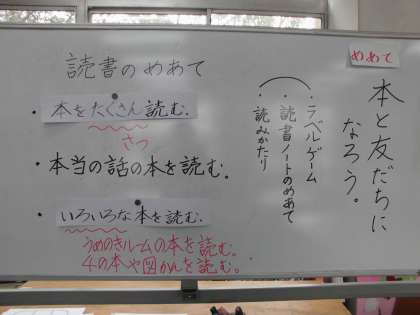 めあて
本と友だちに
なろう。
・ラベルゲーム
・読書ノートのめあて
・読みかたり
読書のめあて
・本をたくさん読む。
さつ
・本当の話の本を読む。
・いろいろな本を読む。
うめのきルームの本を読む。
4の本や図かんを読む。